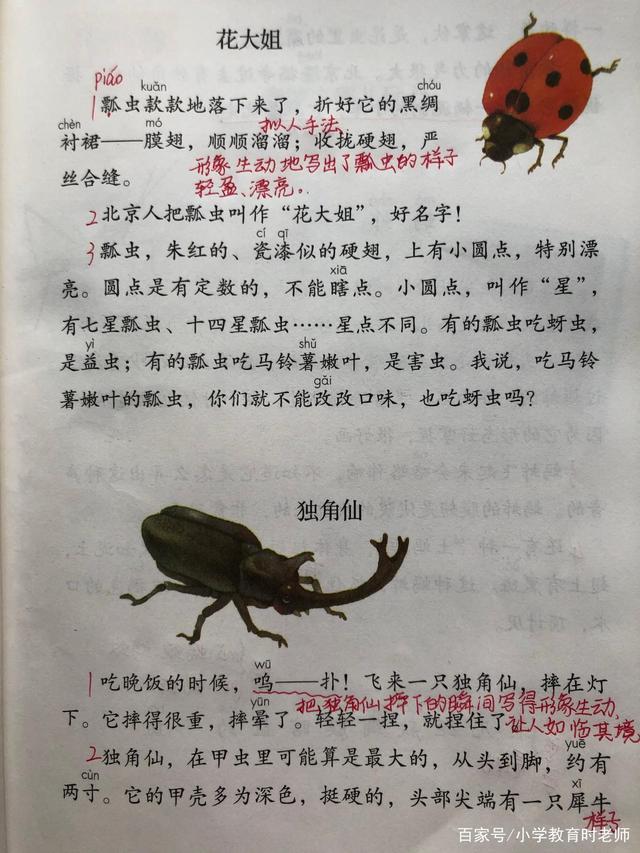 花大姐
piáo
kuǎn chóu
1瓢虫款款地落下来了，折好它的黑绸
chèn mó
拟人手法
衬裙——膜翅，顺顺溜溜；收拢硬翅，严
形象生动地写出了瓢虫的样子
丝合缝。
轻盈、漂亮。
2北京人把瓢虫叫作“花大姐”，好名字！
cí qī
3瓢虫，朱红的、瓷漆似的硬翅，上有小圆点，特别漂
xiā
亮。圆点是有定数的，不能瞎点。小圆点，叫作“星”，
有七星瓢虫、十四星瓢虫……星点不同。有的瓢虫吃蚜虫，
yì shǔ
是益虫；有的瓢虫吃马铃薯嫩叶，是害虫。我说，吃马铃
gǎi
薯嫩叶的瓢虫，你们就不能改改口味，也吃蚜虫吗？
独角仙
wū
1吃晚饭的时候，呜——扑！飞来一只独角仙，摔在灯
把独角仙摔下的瞬间写得形象生动，
yūn
下。它摔得很重，摔晕了。轻轻一捏，就捏住了。
让人如临其境
yuē
2独角仙，在甲虫里可能算是最大的，从头到脚，约有
cùn xī
两寸。它的甲壳多为深色，挺硬的，头部尖端有一只犀牛
样子
百家号/小学教育时老师